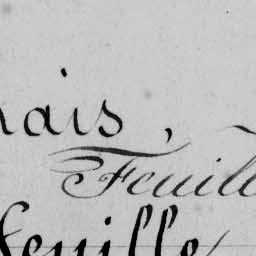 nais,
Feuill
feuille